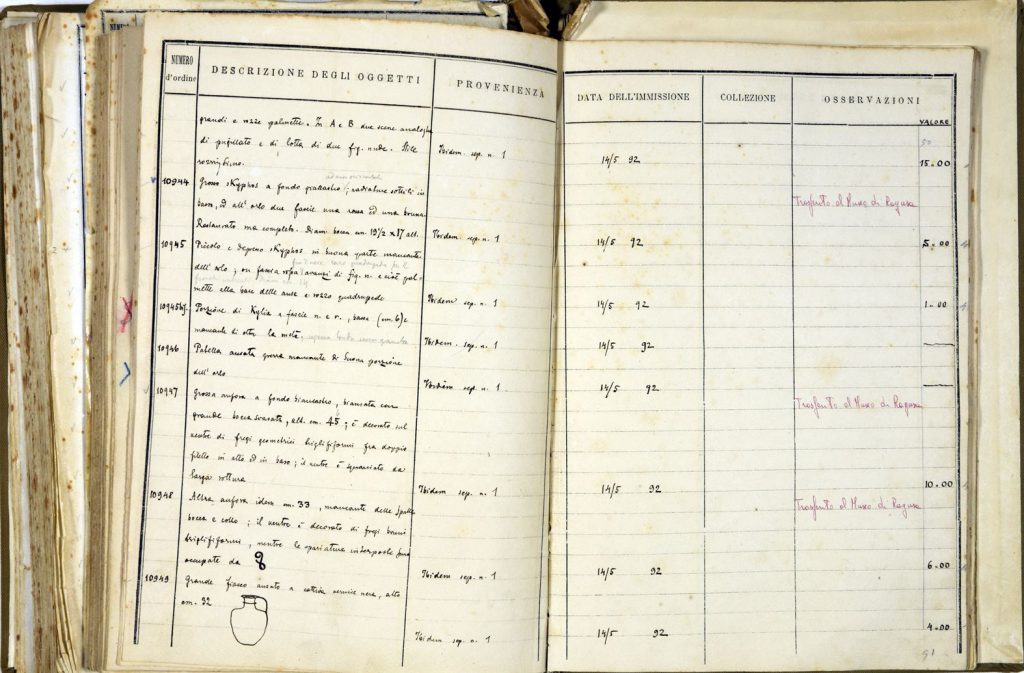 NUMERO d'ordine
DESCRIZIONE DEGLI OGGETTI
PROVENIENZA
DATA DELL'IMMISSIONE
COLLEZIONE
OSSERVAZIONI
VALORE
grandi e rozze palmette. In A e B due scene analoghe
di pugillato e di lotta di due fig. nude. Stile
Ibidem. sep. n. 1
14/5 92
50
15.00
10944
Grosso skyphos a fondo giallastro; radiature sottili in
basso, ed all'orlo due fascie una rossa ed una bruna
Restaurato ma completo. Diam. bocca cm. 19½ x 17 alt.
Ibidem. sep. n. 1
14/5 92
Trasferito al Museo di Ragusa
5.00
10945
Piccolo e depresso skyphos in buona parte mancante
dell'orlo; su fascia rossa avanzi di fig. n. e cioè pal-
mette alla base delle anse e rozzo quadrupede
Ibidem sep. n. 1
14/5 92
1.00
10945bis
Porzione di Kylix a fascie n. e r., bassa (cm. 6) e
mancante di oltre la metà.
Ibidem. sep. n. 1
14/5 92
10946
Patella ansata grezza mancante di buona porzione
dell'orlo
Ibidem sep. n. 1
14/5 92
10947
Grossa anfora a fondo biancastro, biansata con
grande bocca svasata, alt. cm. 45; è decorata sul
ventre di fregi geometrici triglififormi fra doppio
filetto in alto ed in basso; il ventre è squarciato da
larga rottura
Ibidem sep. n. 1
14/5 92
Trasferito al Museo di Ragusa
10.00
10948
Altra anfora idem cm. 33, mancante delle spalle
bocca e collo; il ventre è decorato di fregi bruni
triglififormi, mentre le spaziature interposte sono
occupate da
Ibidem sep. n. 1
14/5 92
Trasferito al Museo di Ragusa
6.00
10949
Grande fiasco ansato a cattiva vernice nera, alto
cm. 32
Ibidem sep. n. 1
14/5 92
4.00
91